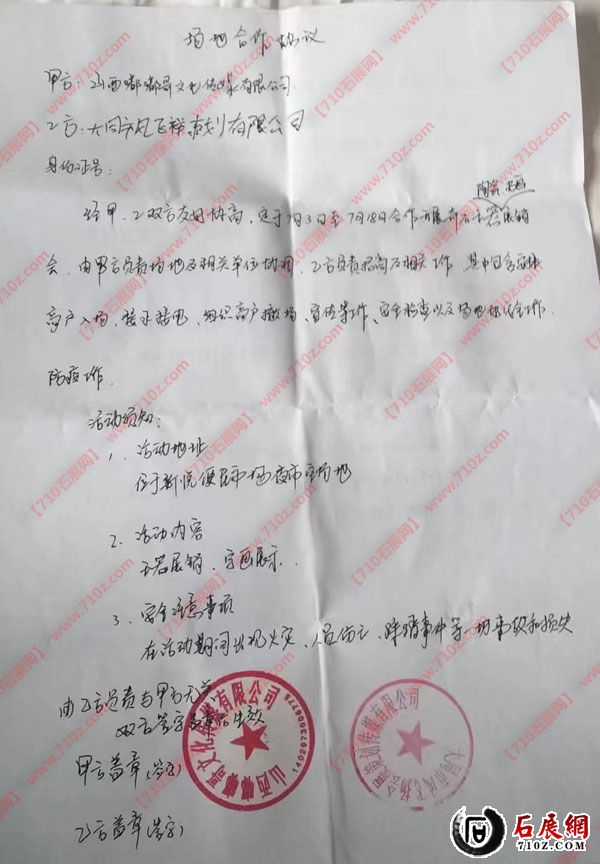 场地合作协议
甲方：山西嘟嘟哥文化传媒有限公司
乙方：大同市风飞扬策划有限公司
身份证号：
陶瓷
经甲、乙双方友好协商，定于7月3日至7月18日合作开展奇石玉器展销
会，由甲方负责场地及相关单位协调，乙方负责招商及相关工作，其中包含
商户入场、接水接电、组织商户撤场、宣传等工作、安全检查以及场地保洁工作，
防疫工作．
活动须知：
1、活动地址
位于新悦便民市场夜市空场地
2、活动内容
玉器展销、字画展示．
3、安全注意事项
在活动期间出现火灾、人员伤亡、踩踏事件等一切事故和损失
由乙方负责与甲方无关
双方签字盖章后生效
甲方盖章（签字）
乙方盖章（签字）
山西嘟嘟哥文化传媒有限公司
【710石展网】www.710z.com
石展網
710Z.COM